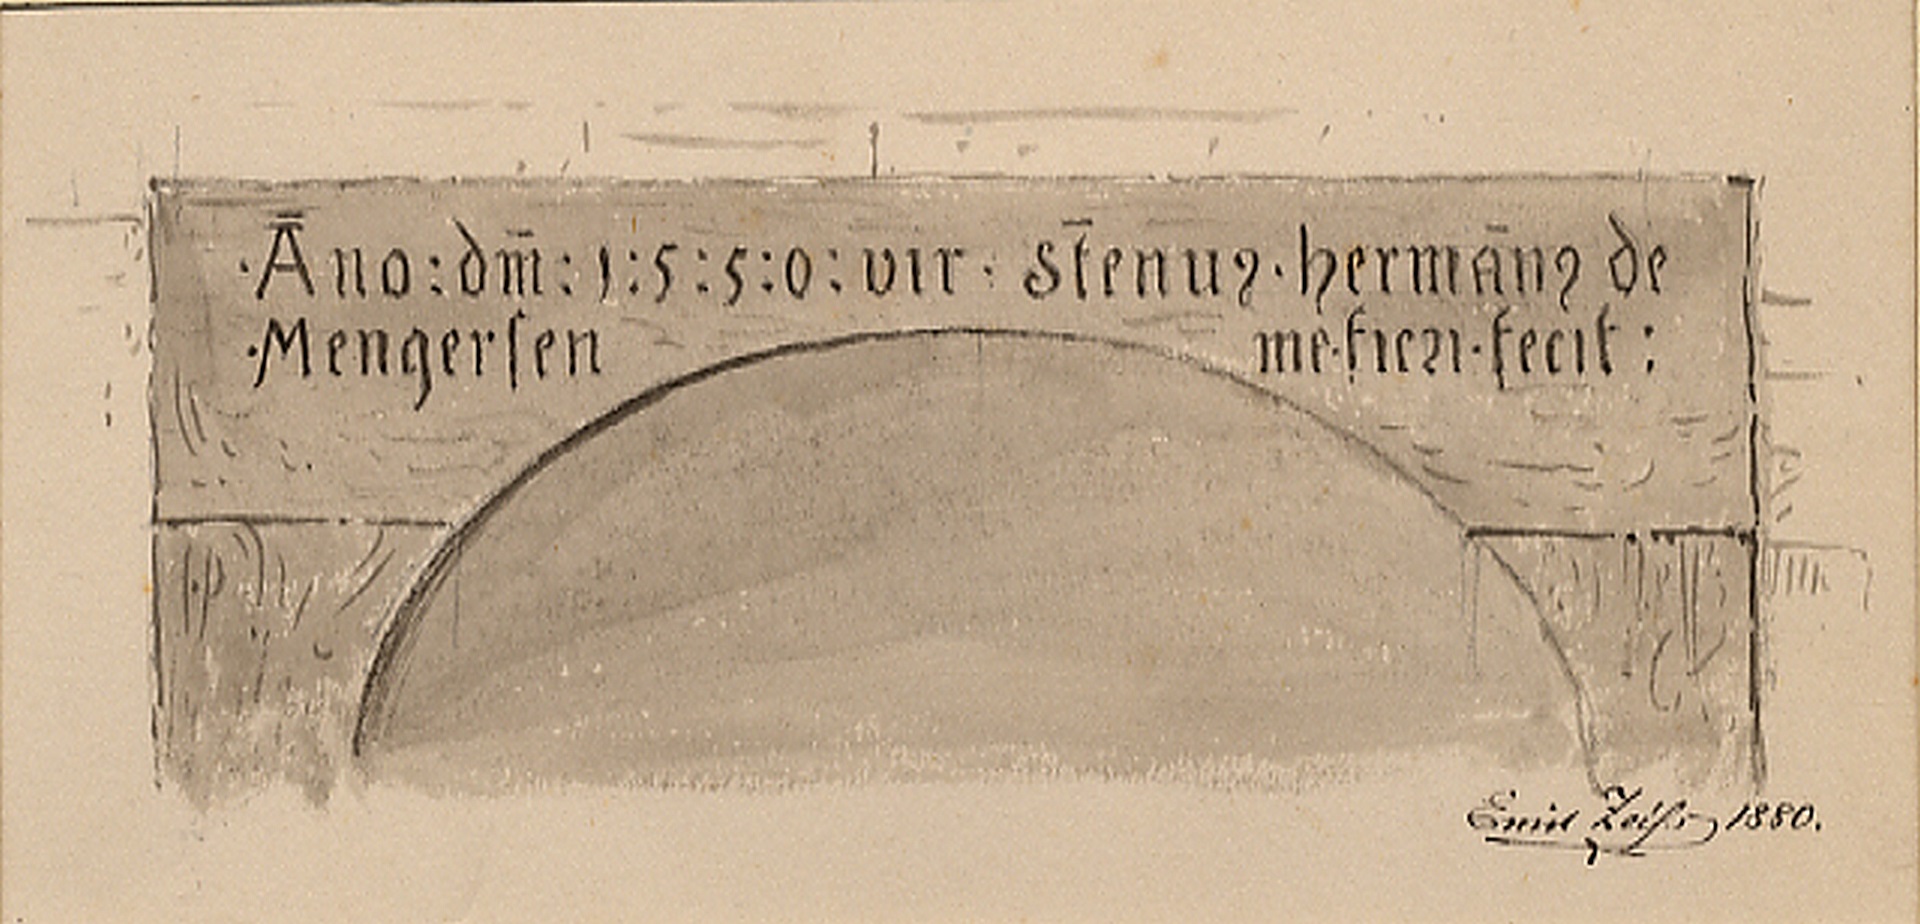 ·Āno:dm̄:1:5:5:0:vir· st̄enuꝰ·hermānꝰ de
·Mengersen me·fieri·fecit:
Emil Zeiß 1880.